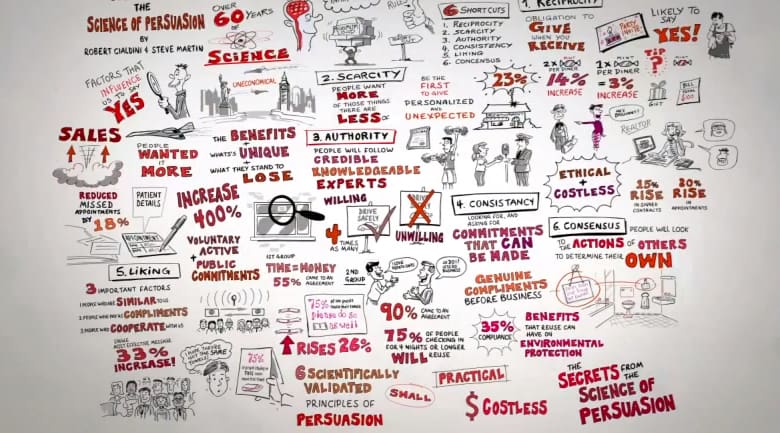 THE
SCIENCE OF PERSUASION
BY
ROBERT CIALDINI & STEVE MARTIN
OVER
60 YEARS
OF
SCIENCE
FACTORS THAT
INFLUENCE
US TO SAY
YES
UNECONOMICAL
6 SHORTCUTS
1. RECIPROCITY
2. SCARCITY
3. AUTHORITY
4. CONSISTENCY
5. LIKING
6. CONSENSUS
1. RECIPROCITY
OBLIGATION TO
GIVE
WHEN YOU
RECEIVE
PARTY
INVITE
LIKELY TO
SAY
YES!
23%
2 x MINT
PER DINER
14%
INCREASE
MINT
PER DINER
= 3%
INCREASE
TIP
?
GIFT
BILL
TOTAL
$100
BE THE
FIRST
TO GIVE
PERSONALIZED
AND
UNEXPECTED
2. SCARCITY
PEOPLE WANT
MORE
OF THOSE THINGS
THERE ARE
LESS OF
SALES
PEOPLE
WANTED
IT
MORE
THE BENEFITS
+
WHAT'S UNIQUE
+
WHAT THEY STAND TO
LOSE
3. AUTHORITY
PEOPLE WILL FOLLOW
CREDIBLE
KNOWLEDGEABLE
EXPERTS
REALTOR
ETHICAL
+
COSTLESS
15%
RISE
IN SIGNED
CONTRACTS
20%
RISE
IN APPOINTMENTS
REDUCED
MISSED
APPOINTMENTS
BY 18%
PATIENT
DETAILS
APPOINTMENT
INCREASE
400%
VOLUNTARY
ACTIVE
+
PUBLIC
COMMITMENTS
WILLING
4
TIMES AS
MANY
DRIVE
SAFELY
DRIVE
UNWILLING
4. CONSISTANCY
LOOKING FOR, AND
ASKING FOR
COMMITMENTS
THAT CAN
BE MADE
6. CONSENSUS
PEOPLE WILL LOOK
TO THE ACTIONS OF OTHERS
TO DETERMINE THEIR OWN
5. LIKING
3 IMPORTANT FACTORS
1 PEOPLE WHO ARE SIMILAR TO US
2 PEOPLE WHO PAY US COMPLIMENTS
3 PEOPLE WHO COOPERATE WITH US
1ST GROUP
TIME = MONEY
55% CAME TO AN
AGREEMENT
2ND
GROUP
90% CAME TO AN
AGREEMENT
GENUINE
COMPLIMENTS
BEFORE BUSINESS
MOST EFFECTIVE MESSAGE
33%
INCREASE!
75%
please do so
as well
RISES 26%
75% OF PEOPLE
CHECKING IN
FOR 4 NIGHTS OR LONGER
WILL REUSE
35%
COMPLIANCE
BENEFITS
THAT REUSE CAN
HAVE ON
ENVIRONMENTAL
PROTECTION
75%
6 SCIENTIFICALLY
VALIDATED
PRINCIPLES OF
PERSUASION
SMALL
PRACTICAL
$ COSTLESS
THE
SECRETS FROM
THE
SCIENCE OF
PERSUASION